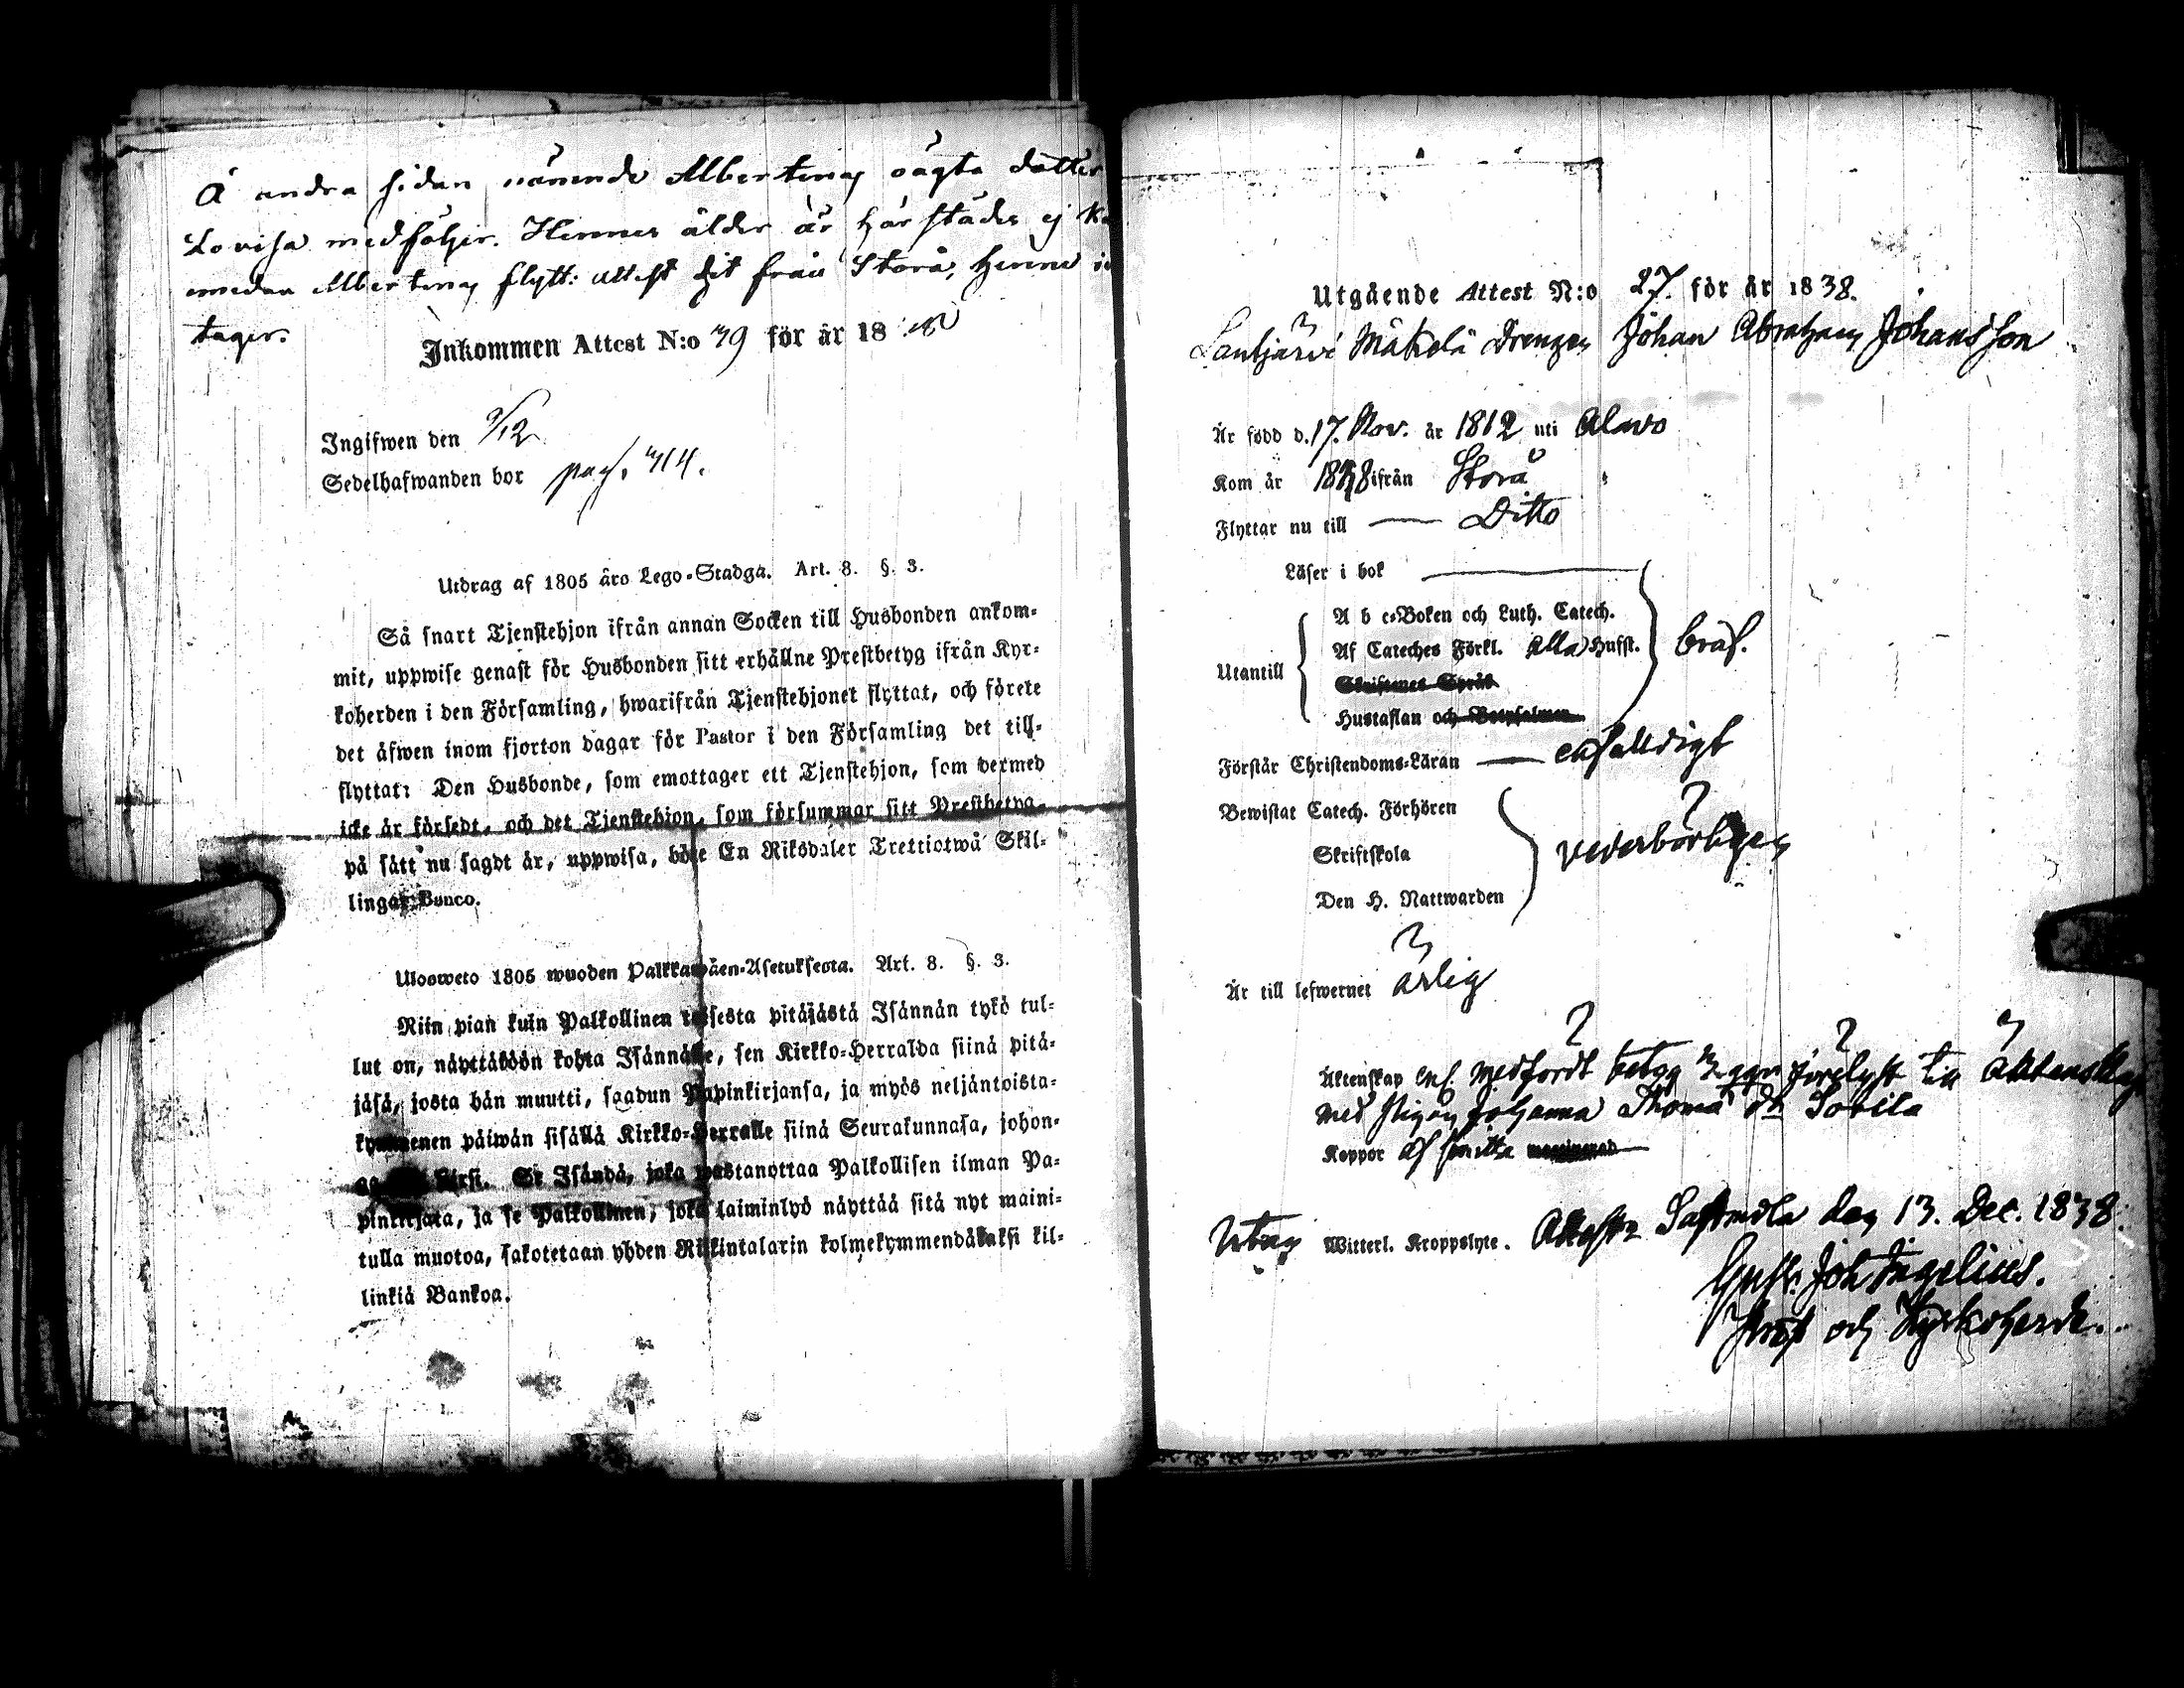 Å andra sidan nämnde Albertinas oägta dotter
Lovisa medföljer. Hennes ålder är härstädes ej
medan Albertinas flytt: attest hit från Storå, henne
tager.
Inkommen Attest N:o 79 för år 18
Ingifwen den 9/12
Sedelhafwanden bor pag. 714.
Utdrag af 1805 åro Lego-Stadga. Art. 8. §. 3.
Så snart Tjenstehjon ifrån annan Socken till Husbonden ankom-
mit, uppwise genast för Husbonden sitt erhållne Prestbetyg ifrån Kyr-
koherden i den Församling, hwarifrån Tjenstehjonet flyttat, och förete
det äfwen inom fjorton dagar för Pastor i den Församling det till-
flyttat: Den Husbonde, som emottager ett Tjenstehjon, som dermed
icke är försedt, och det Tjenstehjon, som försummar sitt Prestbetyg
på sätt nu sagdt är, uppwisa, böte En Riksdaler Trettiotwå Skil-
lingar Banco.
Ulosweto 1805 wuoden Palkkawäen-Asetuksesta. Art. 8. §. 3.
Niin pian kuin Palkollinen toisesta pitäjästä Isännän tykö tul-
lut on, näyttäköön kohta Isännälle, sen Kirkko-Herralda siinä pitä-
jäsä, josta hän muutti, saadun Papinkirjansa, ja myös neljäntoista-
kymmenen päiwän sisällä Kirkko-Herralle siinä Seurakunnasa, johon-
Se Isändä, joka wastanottaa Palkollisen ilman Pa-
pinkirjata, ja se Palkollinen, joka laiminlyö näyttää sitä nyt maini-
tulla muotoa, sakotetaan yhden Riikintalarin kolmekymmendäkaksi kil-
linkiä Bankoa.
Utgående Attest N:o 27. för år 1838.
Lantjärvi Mäkelä Drengen Johan Abraham Johansson
Är född d. 17. Nov. år 1812 uti Alavo
Kom år 1838 ifrån Storå
Flyttar nu till — Ditto
Läser i bok
Utantill
A b c-Boken och Luth. Catech.
Af Cateches Förkl. Alla Hufst.
Skriftenes Språk
Hustaflan och Botpsalmen
braf.
Förstår Christendoms-Läran — enfalldigt
Bewistat Catech. Förhören
Skriftskola
Den H. Nattwarden
vederbörligen
Är till lefwernet ärlig
Äktenskap enl. medfördt betyg 3 ggr förelyst till äktenskap
med pigan Johanna Thomä dr
Koppor af smitta
Utan Witterl. Kroppslyte. Attest. Sastmola den 13. Dec. 1838.
Gust. Joh Ingelius.
Prost och Kyrkoherde.